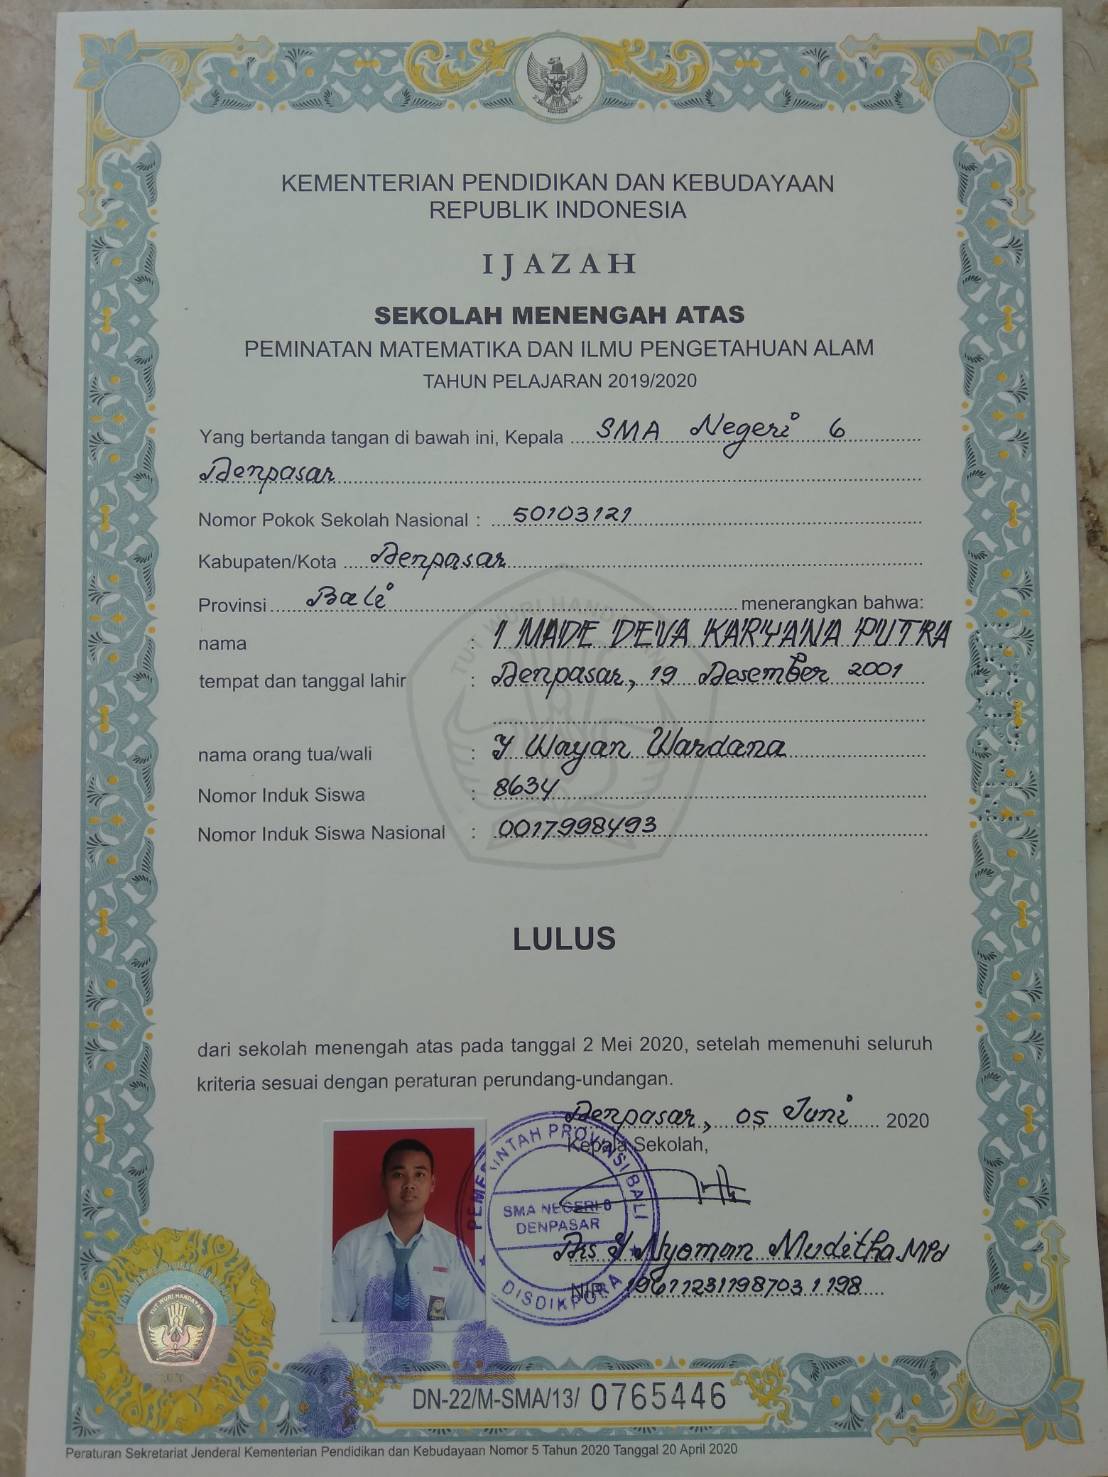 KEMENTERIAN PENDIDIKAN DAN KEBUDAYAAN
REPUBLIK INDONESIA
IJAZAH
SEKOLAH MENENGAH ATAS
PEMINATAN MATEMATIKA DAN ILMU PENGETAHUAN ALAM
TAHUN PELAJARAN 2019/2020
Yang bertanda tangan di bawah ini, Kepala SMA Negeri 6
Denpasar
Nomor Pokok Sekolah Nasional : 50103121
Kabupaten/Kota Denpasar
Provinsi Bali menerangkan bahwa:
nama : I MADE DEVA KARYANA PUTRA
tempat dan tanggal lahir : Denpasar, 19 Desember 2001
nama orang tua/wali : I Wayan Wardana
Nomor Induk Siswa : 8634
Nomor Induk Siswa Nasional : 0017998493
TUT WURI HANDAYANI
LULUS
dari sekolah menengah atas pada tanggal 2 Mei 2020, setelah memenuhi seluruh
kriteria sesuai dengan peraturan perundang-undangan.
Denpasar, 05 Juni 2020
Kepala Sekolah,
PEMERINTAH PROVINSI BALI
SMA NEGERI 6
DENPASAR
DISDIKPORA
Drs I Nyoman Muditha, MPd
NIP. 196712311987031198
TUT WURI HANDAYANI
DN-22/M-SMA/13/ 0765446
Peraturan Sekretariat Jenderal Kementerian Pendidikan dan Kebudayaan Nomor 5 Tahun 2020 Tanggal 20 April 2020